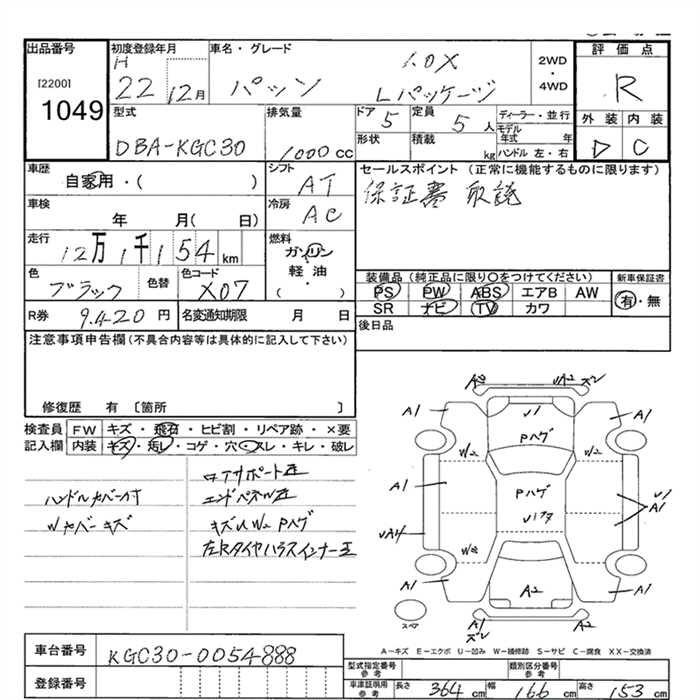 出品番号
[2200]
1049
初度登録年月
H
22 12月
車名・グレード
パッソ
1.0X
Lパッケージ
2WD
・
4WD
評価点
R
外装 内装
D C
型式
DBA-KGC30
排気量
1000cc
ドア 5
定員 5人
形状
積載 kg
ディーラー・並行
モデル年式 年
ハンドル 左・右
車歴
自家用・( )
シフト
AT
車検
年 月( 日)
冷房
AC
走行
12万1千154km
燃料
ガソリン
軽油
( )
色
ブラック
色替
色コード
X07
R券 9.420円
名変通知期限 月 日
セールスポイント (正常に機能するものに限ります)
保証書 取説
装備品 (純正品に限り○をつけてください)
PS PW ABS エアB AW
SR ナビ TV カワ
新車保証書
有・無
後日品
注意事項申告欄(不具合内容等は具体的に記入して下さい)
修復歴 有 〔箇所 〕
検査員記入欄
FW キズ・飛石・ヒビ割・リペア跡・×要
内装 キズ・汚レ・コゲ・穴・スレ・キレ・破レ
ハンドルカバー付
Wカバーキズ
コアサポート歪
エンドパネル歪
キズU W2 Pハゲ
左Rタイヤハウスインナー歪
A2 UA2 ズレ
A1 U1 A1
Pハゲ
W2 W2
A1 Pハゲ U1
A1
UA4
W2
A1 A2 A1
A1
ズレ
A2
スペア
A−キズ E−エクボ U−凹み W−補修跡 S−サビ C−腐食 XX−交換済
車台番号
KGC30-0054888
登録番号
型式指定番号
参考
類別区分番号
参考
車庫証明用
参考
長さ 364cm 幅 166cm 高さ 153cm